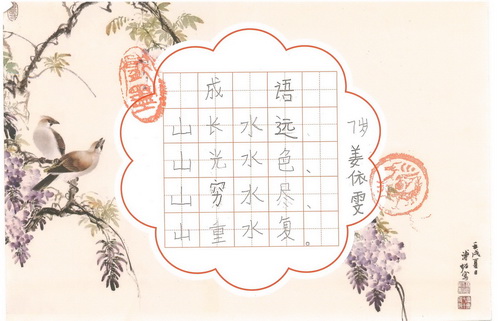 成语
山长水远、
山光水色、
山穷水尽、
山重水复。
7岁
姜依雯